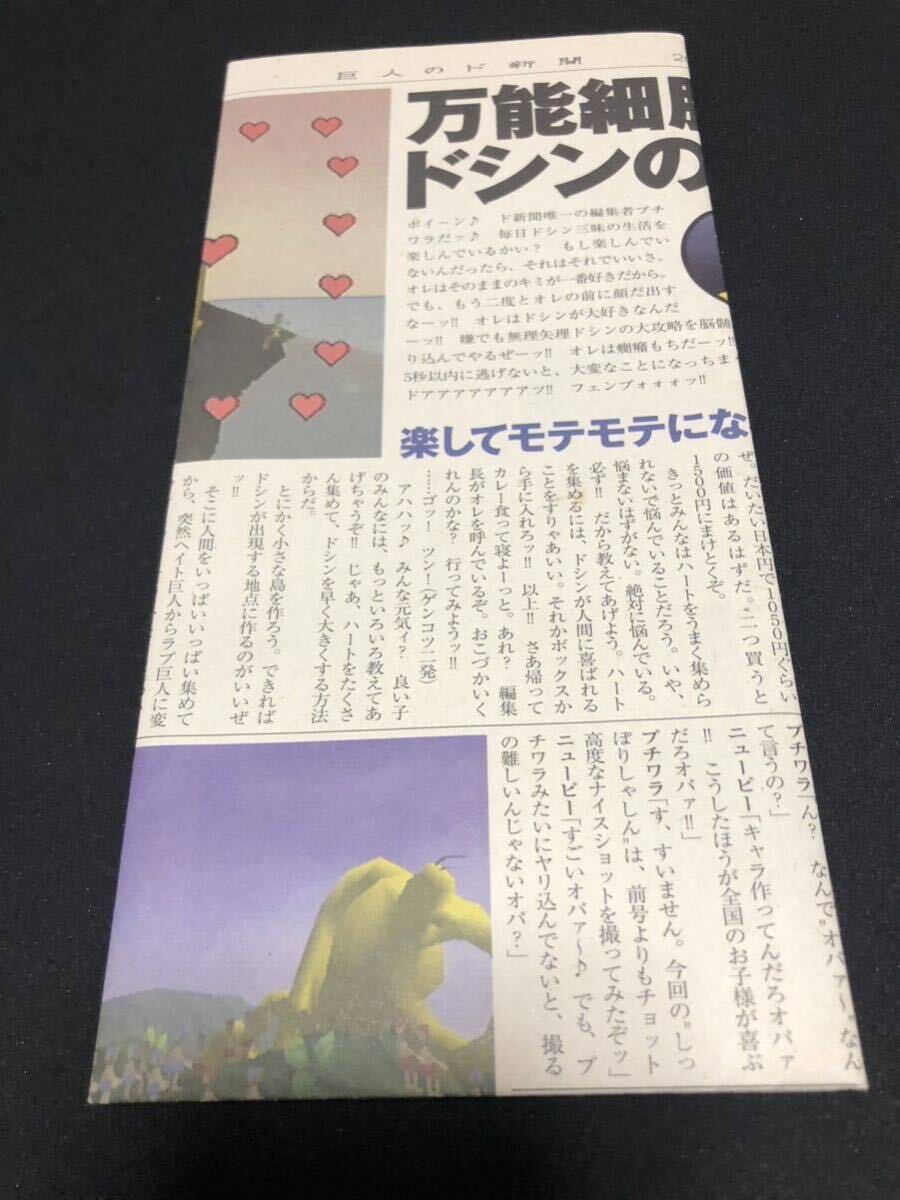 巨人のド新聞
万能細
ドシンの
ポイ〜ン♪ ド新聞唯一の編集者プチ
ワラだッ♪ 毎日ドシン三昧の生活を
楽しんでいるかい? もし楽しんでい
ないんだったら、それはそれでいいさ。
オレはそのままのキミが一番好きだから。
でも、もう二度とオレの前に顔だ出す
なーッ!! オレはドシンが大好きなんだ
ーッ!! 嫌でも無理矢理ドシンの大攻略を脳髄
り込んでやるぜーッ!! オレは癇癪もちだーッ!!
5秒以内に逃げないと、大変なことになっちま
ドアアアアアアアアツ!! フェンブォォォッ!!
楽してモテモテにな
ぜ。だいたい日本円で1050円ぐらい
の価値はあるはずだ。二つ買うと
1500円にまけとくぞ。
きっとみんなはハートをうまく集めら
れないで悩んでいることだろう。いや、
悩まないはずがない。絶対に悩んでいる。
必ず!! だから教えてあげよう。ハート
を集めるには、ドシンが人間に喜ばれる
ことをすりゃあいい。それかボックスか
ら手に入れろッ!! 以上!! さあ帰って
カレー食って寝よーっと。あれ? 編集
長がオレを呼んでいるぞ。おこづかいく
れんのかな? 行ってみようッ!!
……ゴッ! ツン!(ゲンコツ二発)
アハハッ♪ みんな元気ィ? 良い子
のみんなには、もっといろいろ教えてあ
げちゃうぞ!! じゃあ、ハートをたくさ
ん集めて、ドシンを早く大きくする方法
からだ。
とにかく小さな島を作ろう。できれば
ドシンが出現する地点に作るのがいいぜ
ッ!!
そこに人間をいっぱいいっぱい集めて
から、突然ヘイト巨人からラブ巨人に変
プチワラ「ん? なんで"オパァ〜"なん
て言うの?」
ニュービー「キャラ作ってんだろオパァ
!! こうしたほうが全国のお子様が喜ぶ
だろオパァ!!」
プチワラ「す、すいません。今回の"しっ
ぽりしゃしん"は、前号よりもチョット
高度なナイスショットを撮ってみたぞッ」
ニュービー「すごいオパァ〜♪ でも、プ
チワラみたいにヤリ込んでないと、撮る
の難しいんじゃないオパ?」